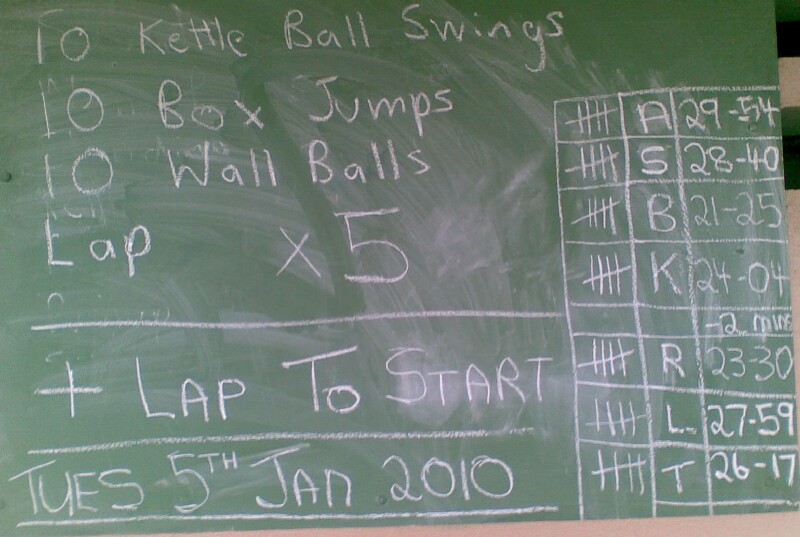 10 Kettle Ball Swings
10 Box Jumps
10 Wall Balls
Lap x 5
+ LAP TO START
TUES 5TH JAN 2010
A 29-54
S 28-40
B 21-25
K 24-04
-2 mins
R 23-30
L 27-59
T 26-17